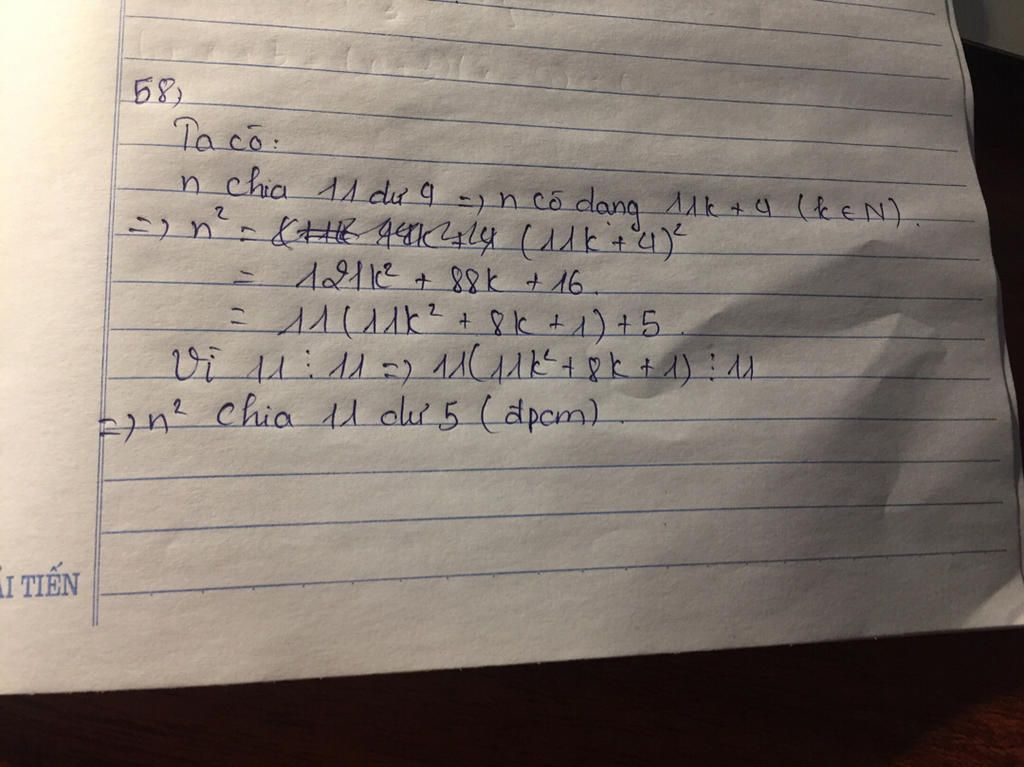 58,
Ta có:
n chia 11 dư 4 => n có dạng 11k + 4 (k ∈ N).
=> n² = (11k + 4)²
= 121k² + 88k + 16.
= 11(11k² + 8k + 1) + 5.
Vì 11 ⋮ 11 => 11(11k² + 8k + 1) ⋮ 11
=> n² chia 11 dư 5 (đpcm).
ẢI TIẾN